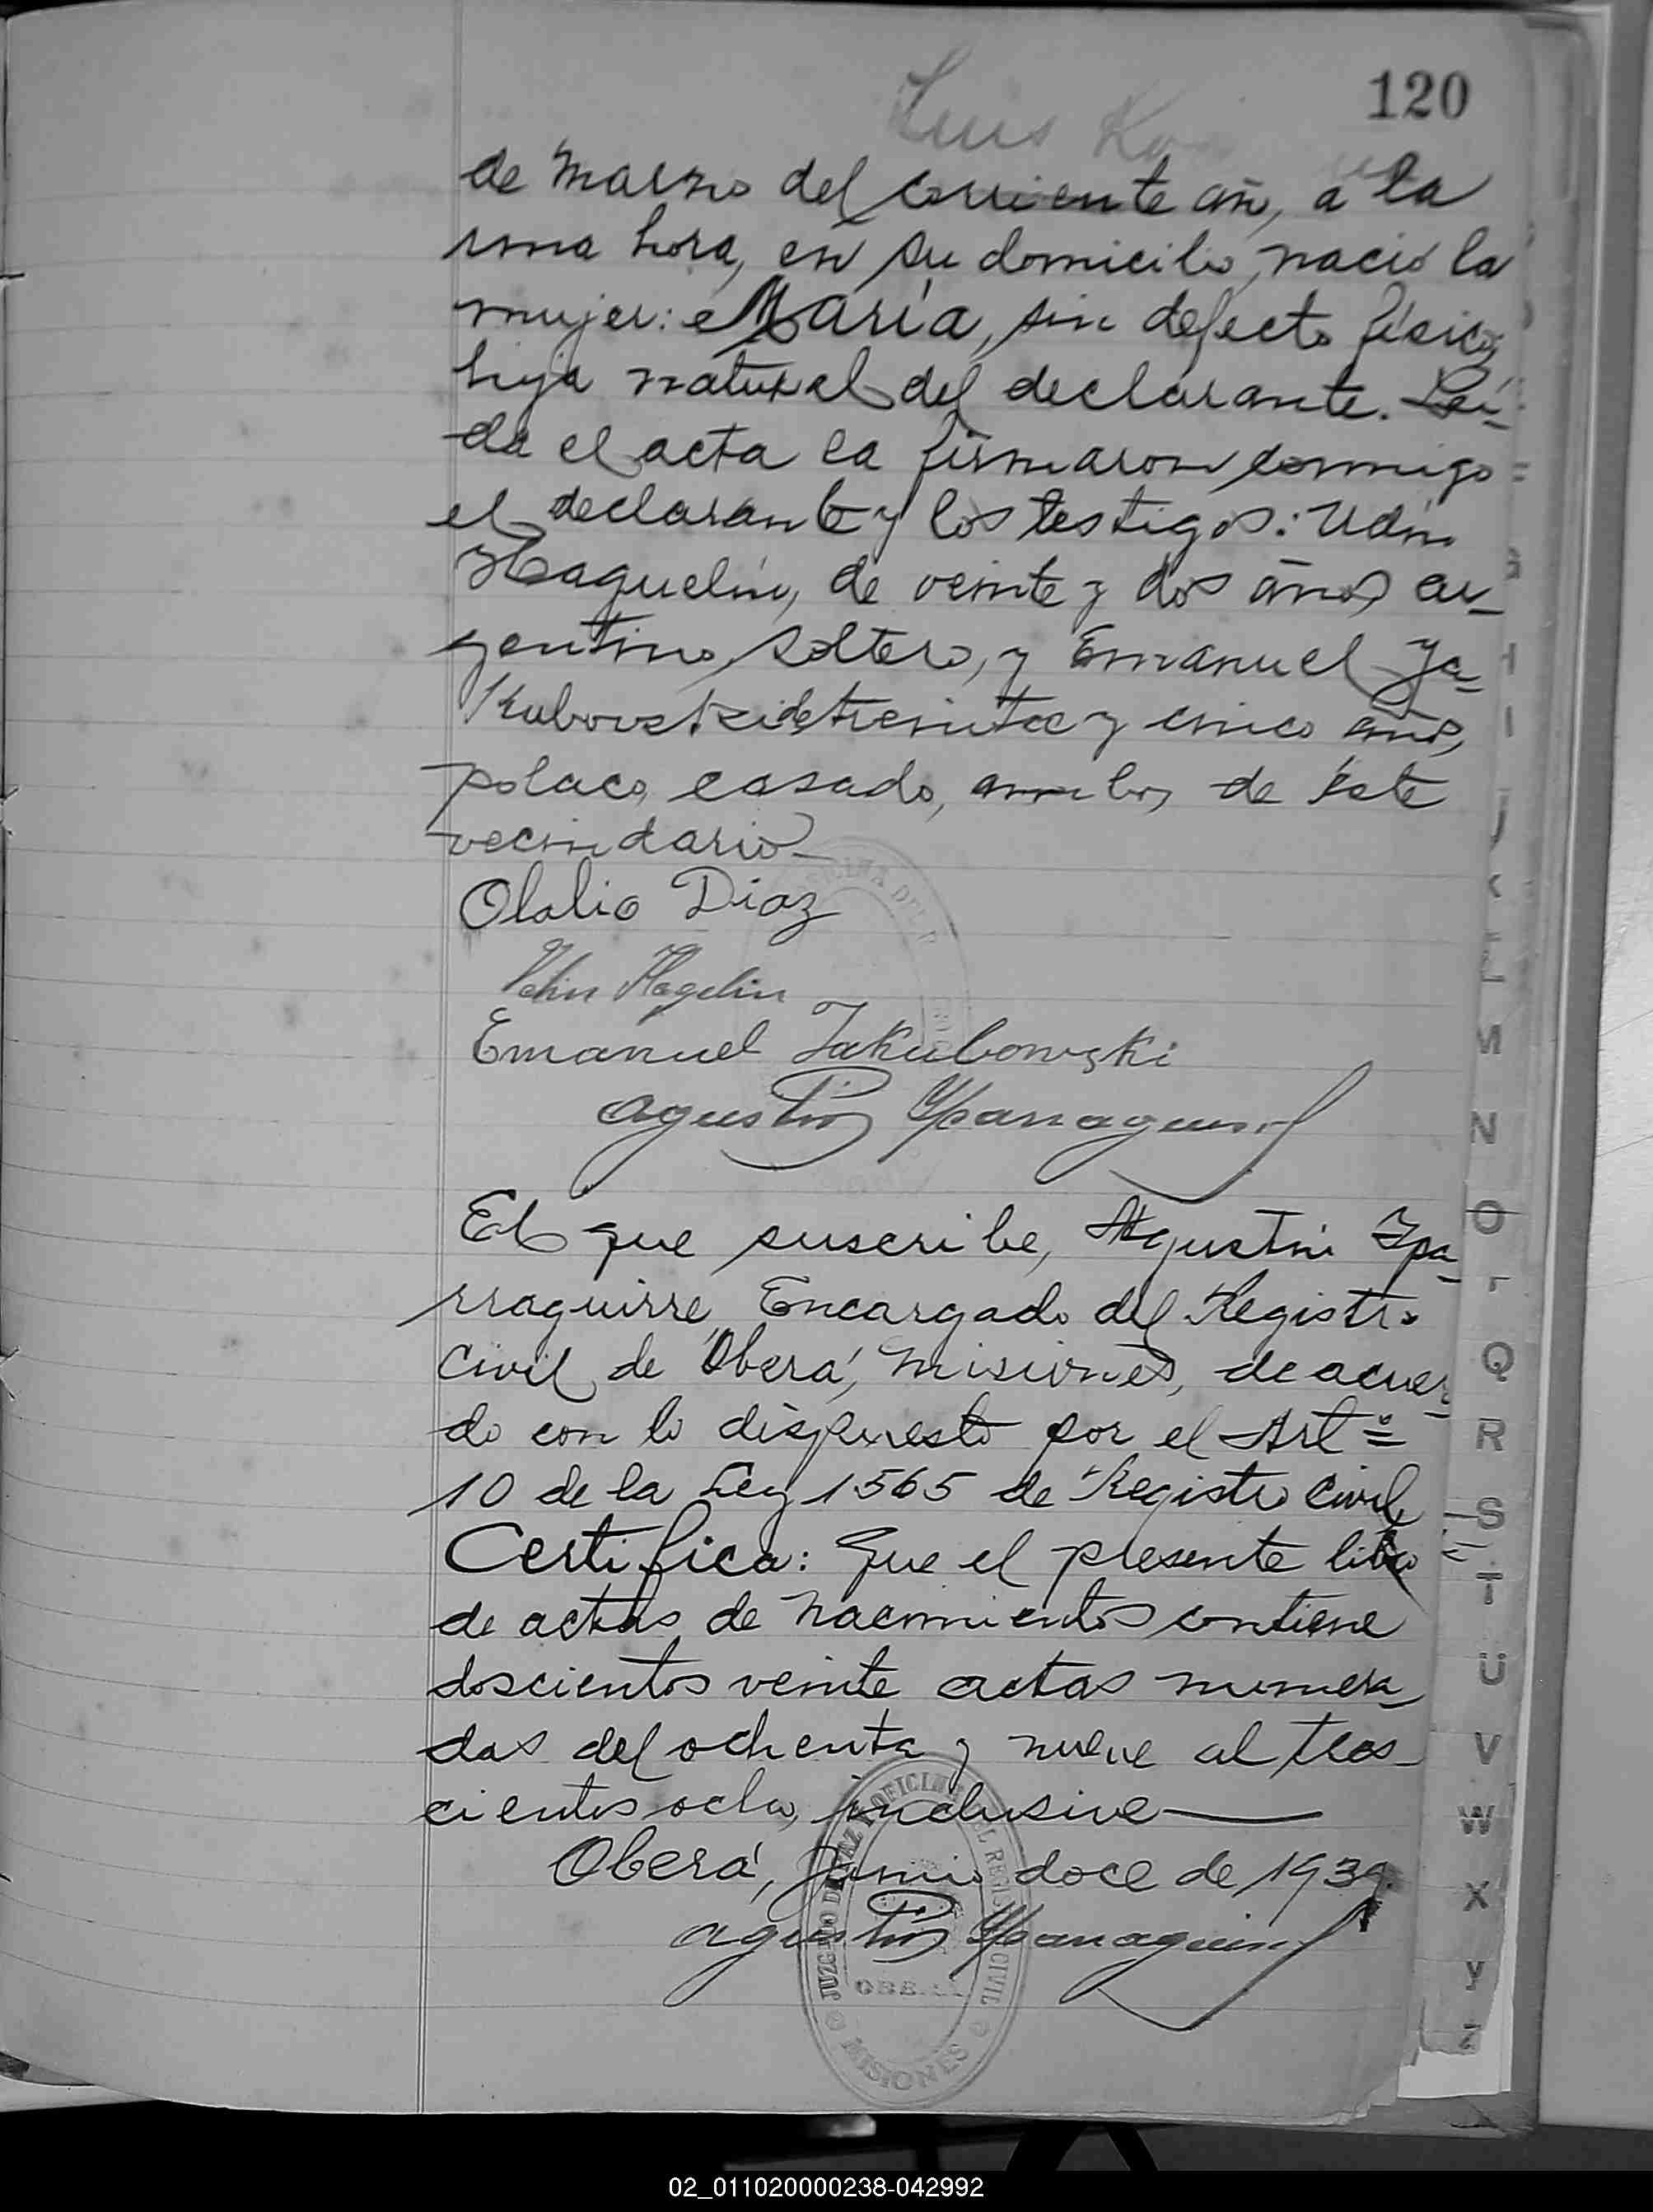 120
Luis
de Marzo del corriente año, a la
una hora, en su domicilio, nació la
mujer: María, sin defecto físico,
hija natural del declarante. Leí-
da el acta la firmaron conmigo
el declarante y los testigos:
Haguelin, de veinte y dos años, ar-
gentino, soltero, y Emanuel Ja-
kubovski de treinta y cinco años,
polaco, casado, ambos de éste
vecindario
Olalio Diaz
Hagelin
Emanuel Jakubowski
Agustin Yparraguirre
El que suscribe, Agustin Ypa-
rraguirre, Encargado del Registro
Civil de Oberá, Misiones, de acuer-
do con lo dispuesto por el Artº
10 de la Ley 1565 de Registro Civil
Certifica: Que el presente libro
de actas de Nacimientos contiene
doscientos veinte actas numera-
das del ochenta y nueve al tres-
cientos ocho, inclusive
Oberá, Junio doce de 1939.
Agustin Yparraguirre
JUZGADO DE PAZ Y OFICINA DEL REGISTRO CIVIL
OBERA
MISIONES
N
O
Q
R
S
T
U
V
W
X
Y
Z
02_011020000238-042992